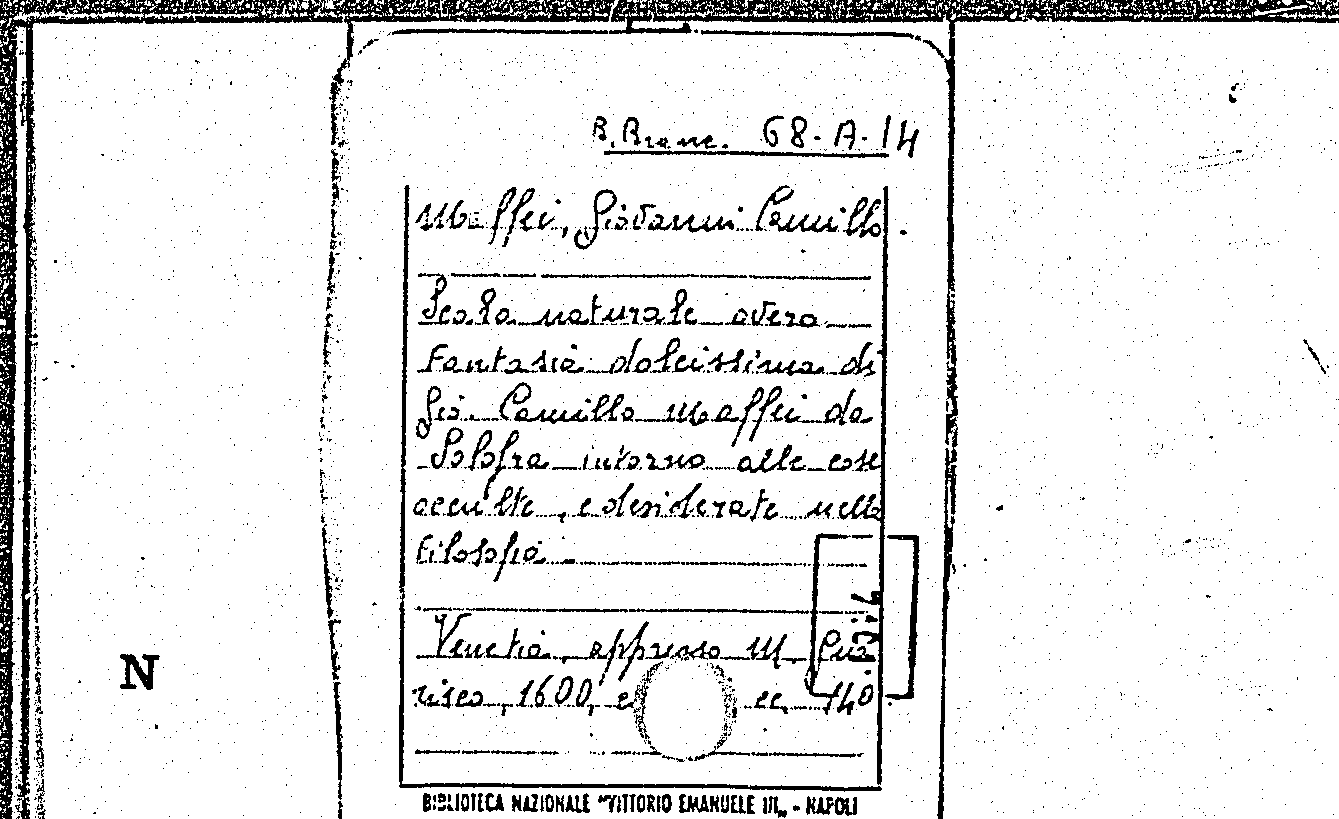 B. Branc. 68-A-14
Maffei, Giovanni Camillo.
Scala naturale overo
Fantasia dolcissima di
Gio. Camillo Maffei da
Solofra intorno alle cose
occulte, e desiderate nella
Filosofia
Venetia, appresso M. Gua
risco, 1600, cc. 140
N
BIBLIOTECA NAZIONALE "VITTORIO EMANUELE III" - NAPOLI